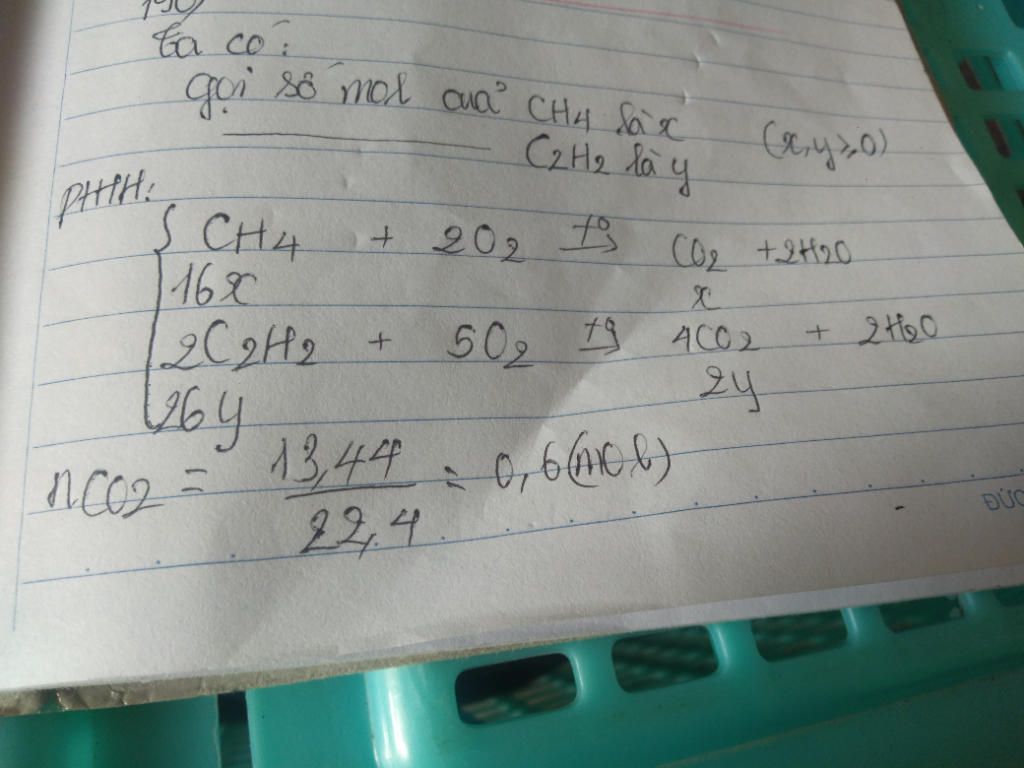 Ta có:
gọi số mol của CH4 là x (x,y ≥ 0)
C2H2 là y
PTHH:
CH4 + 2O2 t°→ CO2 + 2H2O
16x x
2C2H2 + 5O2 t°→ 4CO2 + 2H2O
26y 2y
nCO2 = 13,44 / 22,4 = 0,6(mol)
ĐỨC